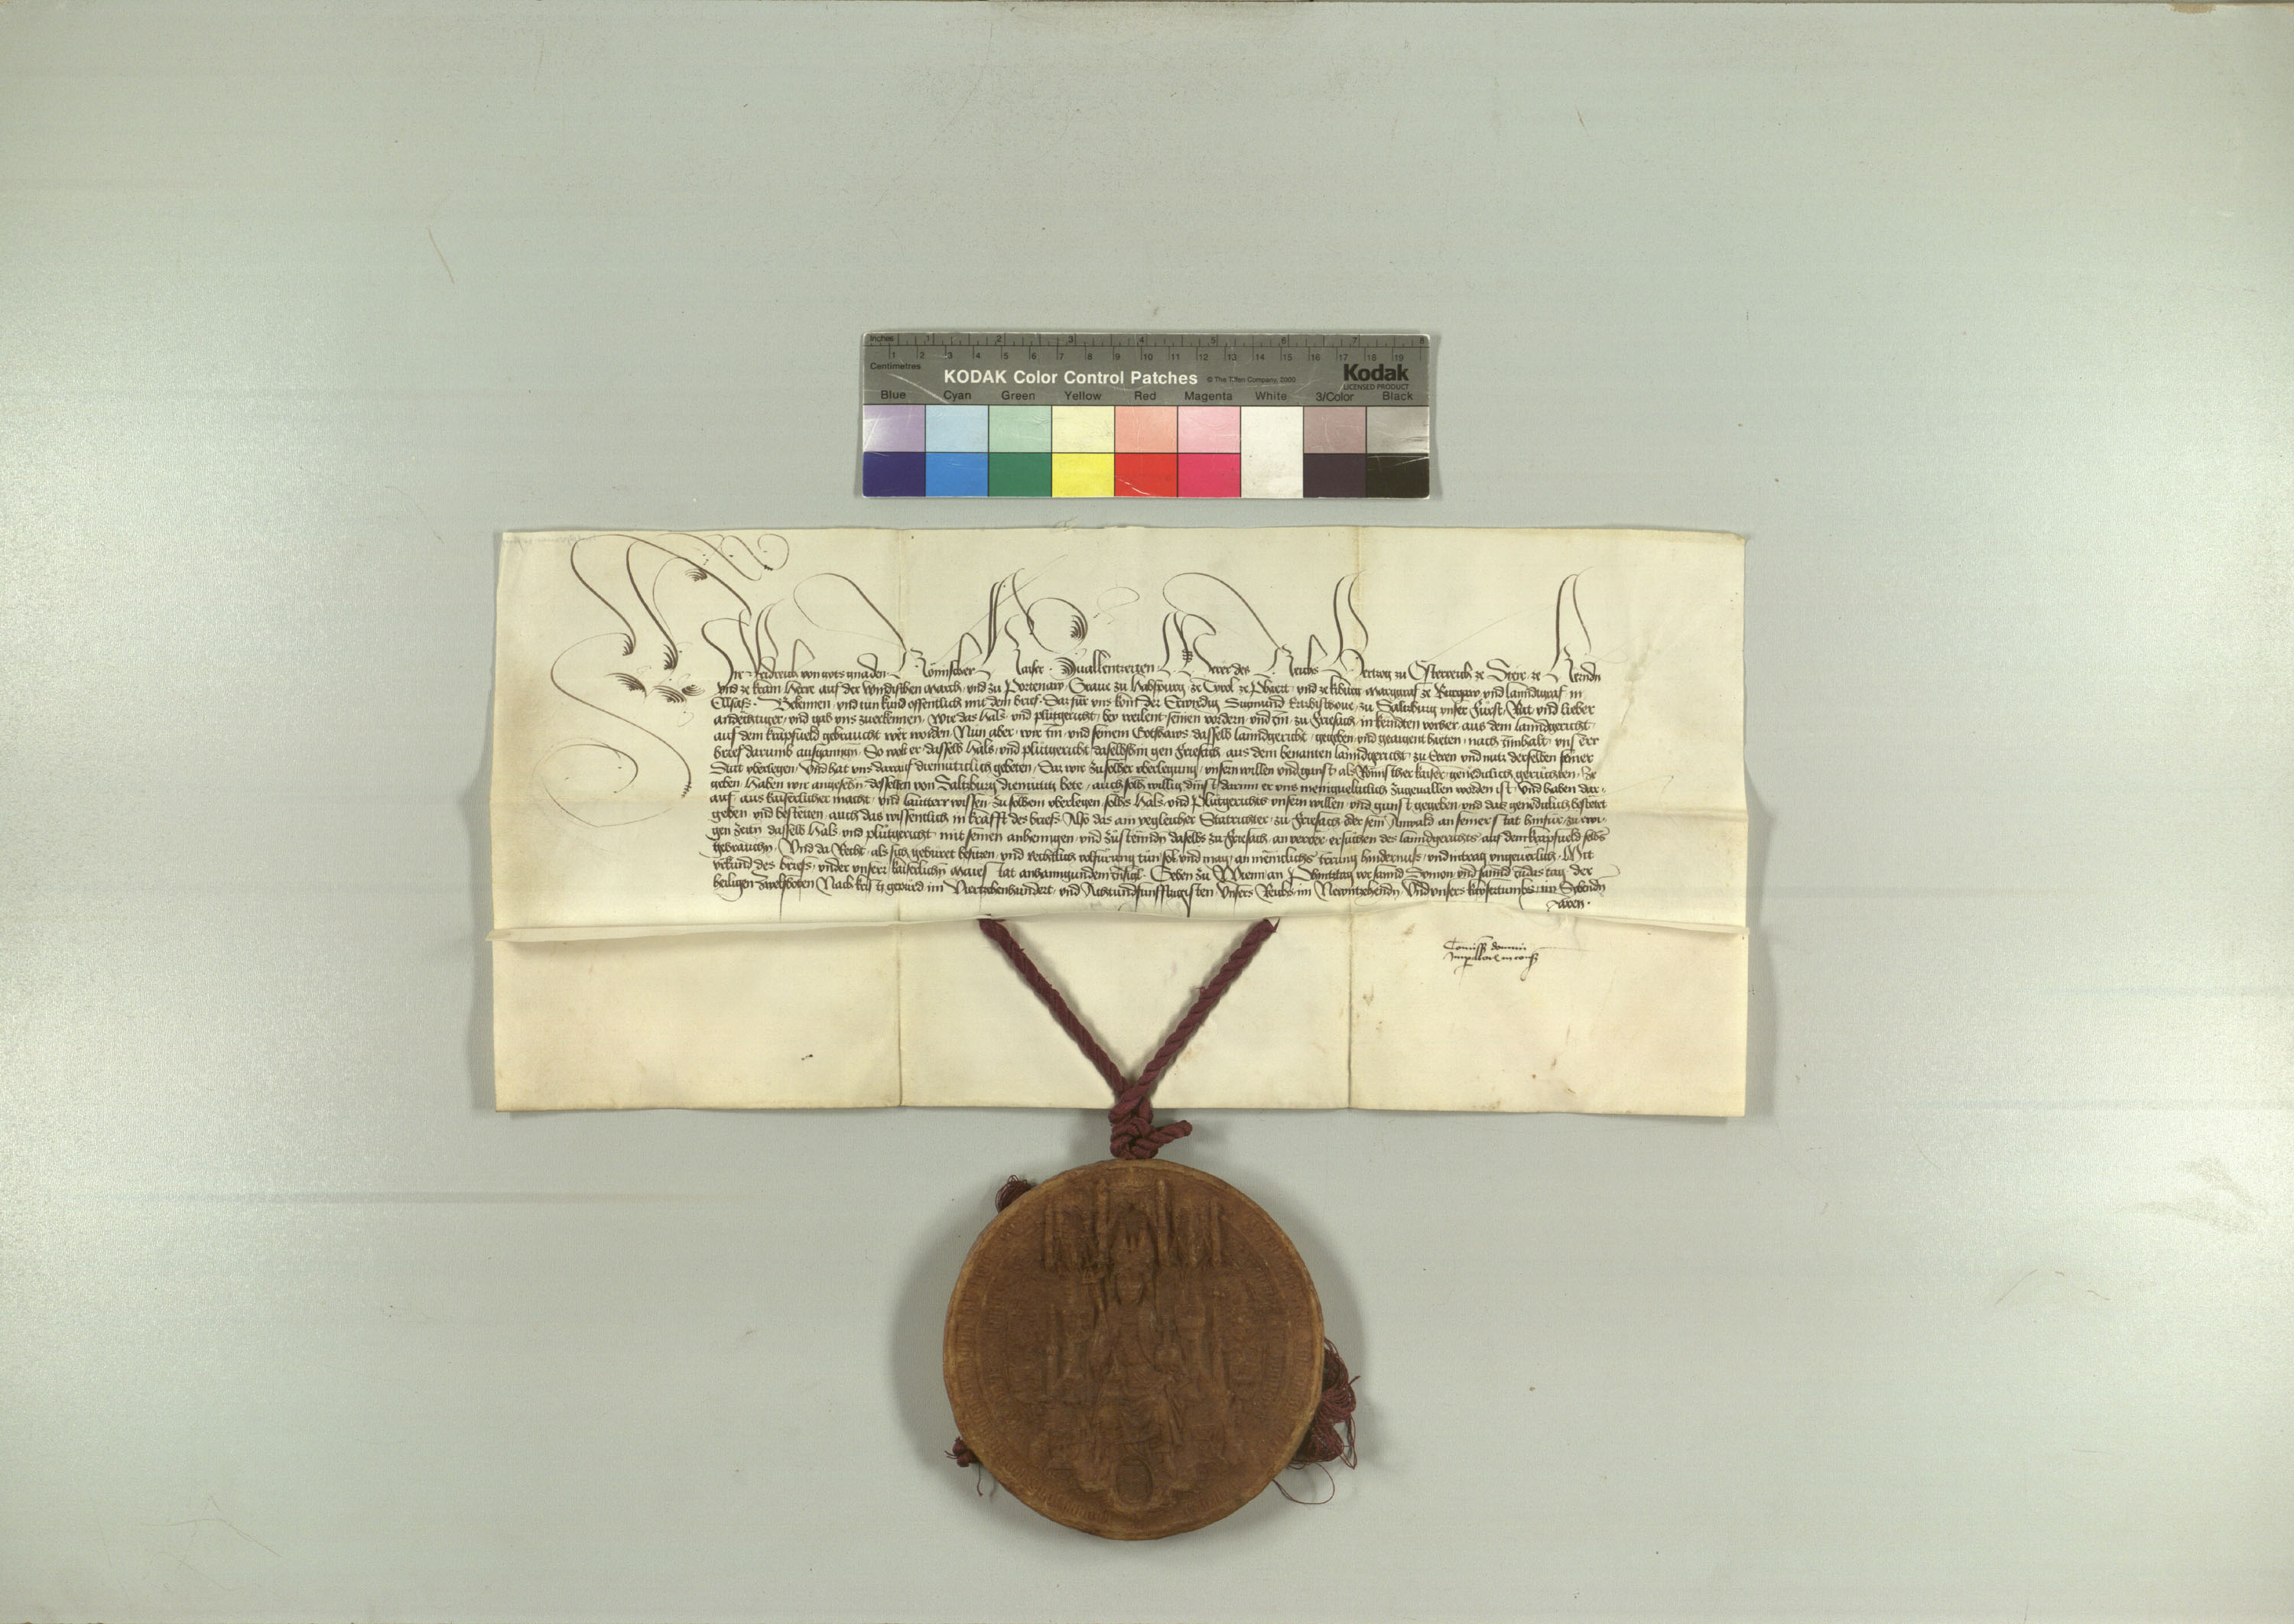 Inches 1 2 3 4 5 6 7 8
Centimetres 1 2 3 4 5 6 7 8 9 10 11 12 13 14 15 16 17 18 19
KODAK Color Control Patches © The Tiffen Company, 2000 Kodak
LICENSED PRODUCT
Blue Cyan Green Yellow Red Magenta White 3/Color Black
Wir Fridreich von gots gnaden Römischer Kaiser Zuallenntzeiten Merer des Reichs Hertzog zu Österreich ze Steir ze Kerndn
und ze krain Herre auf der Windischen March und zu Portenaw Graue zu Habspurg ze Tyrol ze Phyrt und ze kiburg Marggraf ze Burgaw und lanndtgraf in
Ellsass Bekennen und tun kund offentlich mit dem brief Daz für uns komt der Erwirdig Sigmund Ertzbischoue zu Saltzburg unser Fürst Rat und lieber
andechtiger und gab uns zuerkennen Wie das Hals und plutgericht bey weilent seinen vordern und im zu Friesach in kernden vorher aus dem lanndgericht
auf dem krapfueld gebraucht wer worden Nun aber wir im und seinem Gotshaws dasselb lanndgericht gegeben und geaigent hieten nach innhalt unserr
brief darumb ausgangen So wolt er dasselb Hals und plutgericht daselbshin gen Friesach aus dem benanten lanndgericht zu Eeren und nutz derselben seiner
Stat uberlegen Und hat uns darauf diemüticlich gebeten Daz wir zu solher uberlegung unsern willen und gunst als Römischer kaiser genediclich geruchten ze
geben Haben wir angesehn desselben von Saltzburg diemutig bete auch solh willig dinst darinn er uns meniguelticlich zugeuallen worden ist Und haben dar
auf aus kaiserlicher macht und lautterr wissen zu solhem uberlegen solhs Hals und Plutgerichts unsern willen und gunst gegeben und daz genediclich bestetet
geben und bestetten auch das wissentlich in krafft des briefs Also das ain yegleicher Statrichter zu Friesach oder sein Anwald an seiner stat hinfür zu ewi
gen zeitn dasselb Hals und plutgericht mit seinen anhenngen und zusteenndn daselbs zu Friesach an verrer ersuchen des lanndgerichts auf dem krapfueld selbs
gebrauchn Und da Recht als sich geburet besitzen und rechtlich volfurung tun sol und mag an menniclichs irrung hindernuss und intrag ungeuerlich Mit
urkund des briefs under unserr kaiserlichn Maiestat anhanngundem Insigl Geben zu Wienn an Phintztag vor sannd Symon und sannd Judas tag der
heiligen Zwelfboten Nach kristi gepurd im Viertzehenhundert und Achtundfunfftzigisten Unsers Reichs im Newntzehendn Und unsers kaisertumbs im Sybendn
Jaren
Commissio domini
Imperatoris in consilio